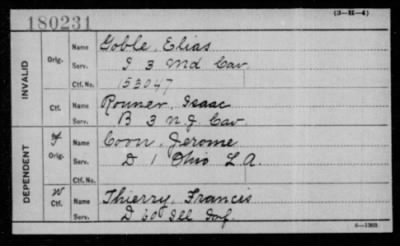 (3-H-4)
180231
INVALID
Orig.
Name Goble, Elias
Serv. I 3 Md Cav.
Ctf. No. 153047
Ctf.
Name Rouner, Isaac
Serv. B 3 N.J. Cav
DEPENDENT
F
Orig.
Name Coon, Jerome
Serv. D 1 Ohio L.A.
Ctf. No.
W
Ctf.
Name Thierry, Francis
Serv. D 60 Ill Inf